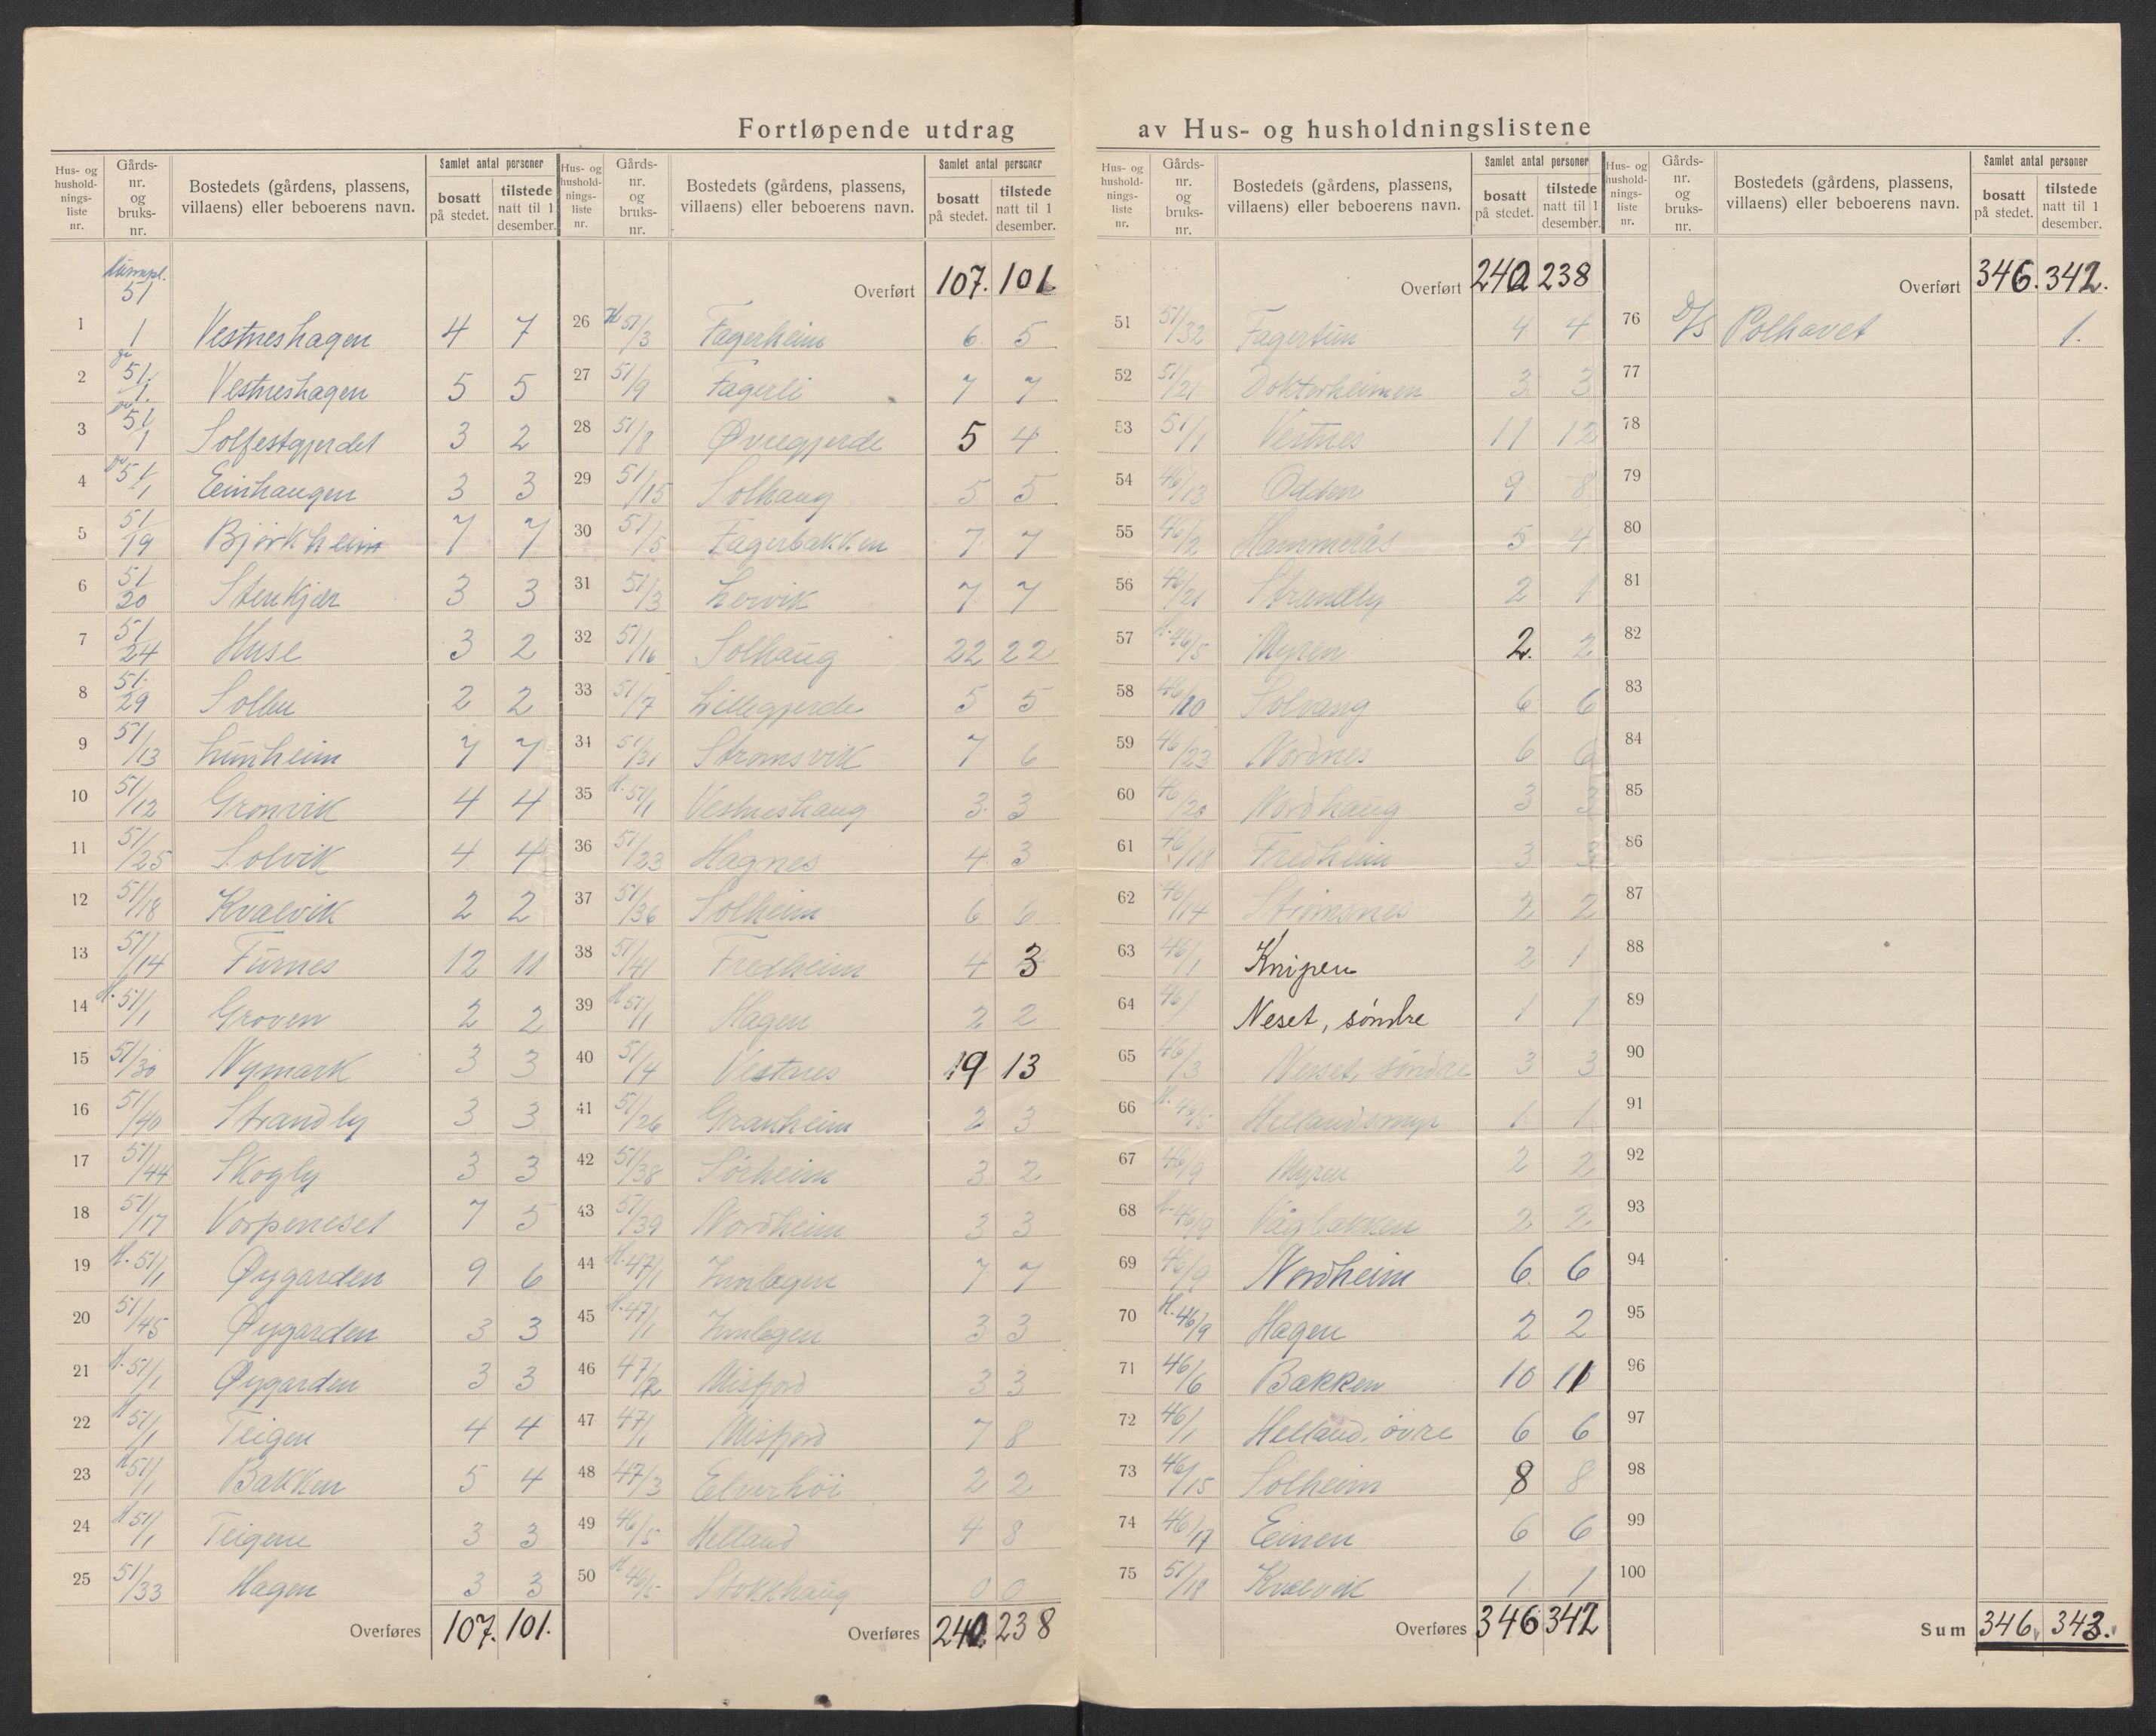 Fortløpende utdrag av Hus- og husholdningslistene
Hus- og hushold-nings-liste nr. Gårds-nr. og bruks-nr. Bostedets (gårdens, plassens, villaens) eller beboerens navn. Samlet antal personer bosatt på stedet. tilstede natt til 1 desember.
51
1 1 Vestneshagen 4 7
2 51/1 Vestneshagen 5 5
3 51/1 Solfestgjerdet 3 2
4 51/1 Einhaugen 3 3
5 51/19 Bjørkheim 7 7
6 51/20 Stenkjær 3 3
7 51/24 Huse 3 2
8 51/29 Solbu 2 2
9 51/13 Lunheim 7 7
10 51/12 Grønvik 4 4
11 51/25 Solvik 4 4
12 51/18 Kvalvik 2 2
13 51/14 Furnes 12 11
14 H. 51/1 Groven 2 2
15 51/30 Nymark 3 3
16 51/40 Strandly 3 3
17 51/44 Skogly 3 3
18 51/17 Vorpeneset 7 5
19 H. 51/1 Øygarden 9 6
20 51/45 Øygarden 3 3
21 H. 51/1 Øygarden 3 3
22 H 51/1 Teigen 4 4
23 H 51/1 Bakken 5 4
24 H 51/1 Teigen 3 3
25 51/33 Hagen 3 3
Overføres 107. 101.
Hus- og hushold-nings-liste nr. Gårds-nr. og bruks-nr. Bostedets (gårdens, plassens, villaens) eller beboerens navn. Samlet antal personer bosatt på stedet. tilstede natt til 1 desember.
Overført 107. 101
26 H 51/3 Fagerheim 6 5
27 51/9 Fagerli 7 7
28 51/8 Øvregjerde 5 4
29 51/15 Solhaug 5 5
30 51/5 Fagerbakken 7 7
31 51/3 Leirvik 7 7
32 51/16 Solhaug 22 22
33 51/7 Lillegjerde 5 5
34 51/31 Strømsvik 7 6
35 H. 51/1 Vestneshaug 3 3
36 51/23 Hagnes 4 3
37 51/36 Solheim 6 6
38 51/41 Fredheim 4 3
39 H 51/1 Hagen 2 2
40 51/4 Vestnes 19 13
41 51/26 Granheim 2 3
42 51/38 Sørheim 3 2
43 51/39 Nordheim 3 3
44 H. 47/1 Innlegen 7 7
45 H. 47/1 Innlegen 3 3
46 47/2 Misfjord 3 3
47 47/1 Misfjord 7 8
48 47/3 Elverhøi 2 2
49 46/5 Helland 4 8
50 H 46/5 Stokkhaug 0 0
Overføres 240 238
Hus- og hushold-nings-liste nr. Gårds-nr. og bruks-nr. Bostedets (gårdens, plassens, villaens) eller beboerens navn. Samlet antal personer bosatt på stedet. tilstede natt til 1 desember.
Overført 240 238
51 51/32 Fagertun 4 4
52 51/21 Doktorheimen 3 3
53 51/1 Vestnes 11 12
54 46/13 9 8
55 46/2 Hammerås 5 4
56 46/21 Strandly 2 1
57 H. 46/5 Myren 2. 2
58 46/10 Solvang 6 6
59 46/23 Nordnes 6 6
60 46/20 Nordhaug 3 3
61 46/18 Fredheim 3 3
62 46/14 Strømsnes 2 2
63 46/1 Knipen 2 1
64 46/ Neset, søndre 1 1
65 46/3 Nesset, søndre 3 3
66 H. 46/5 Hellandsmyr 1 1
67 46/9 Myren 2 2
68 H. 46/9 Vågbakken 2 2
69 46/9 Nordheim 6. 6
70 H. 46/9 Hagen 2 2
71 46/6 Bakken 10 11
72 46/1 Helland, øvre 6 6
73 46/15 Solheim 8 8
74 46/17 Einen 6 6
75 51/18 Kvalvik 1. 1
Overføres 346 342
Hus- og hushold-nings-liste nr. Gårds-nr. og bruks-nr. Bostedets (gårdens, plassens, villaens) eller beboerens navn. Samlet antal personer bosatt på stedet. tilstede natt til 1 desember.
Overført 346. 342.
76 D/S Polhavet 1.
77
78
79
80
81
82
83
84
85
86
87
88
89
90
91
92
93
94
95
96
97
98
99
100
Sum 346. 343.